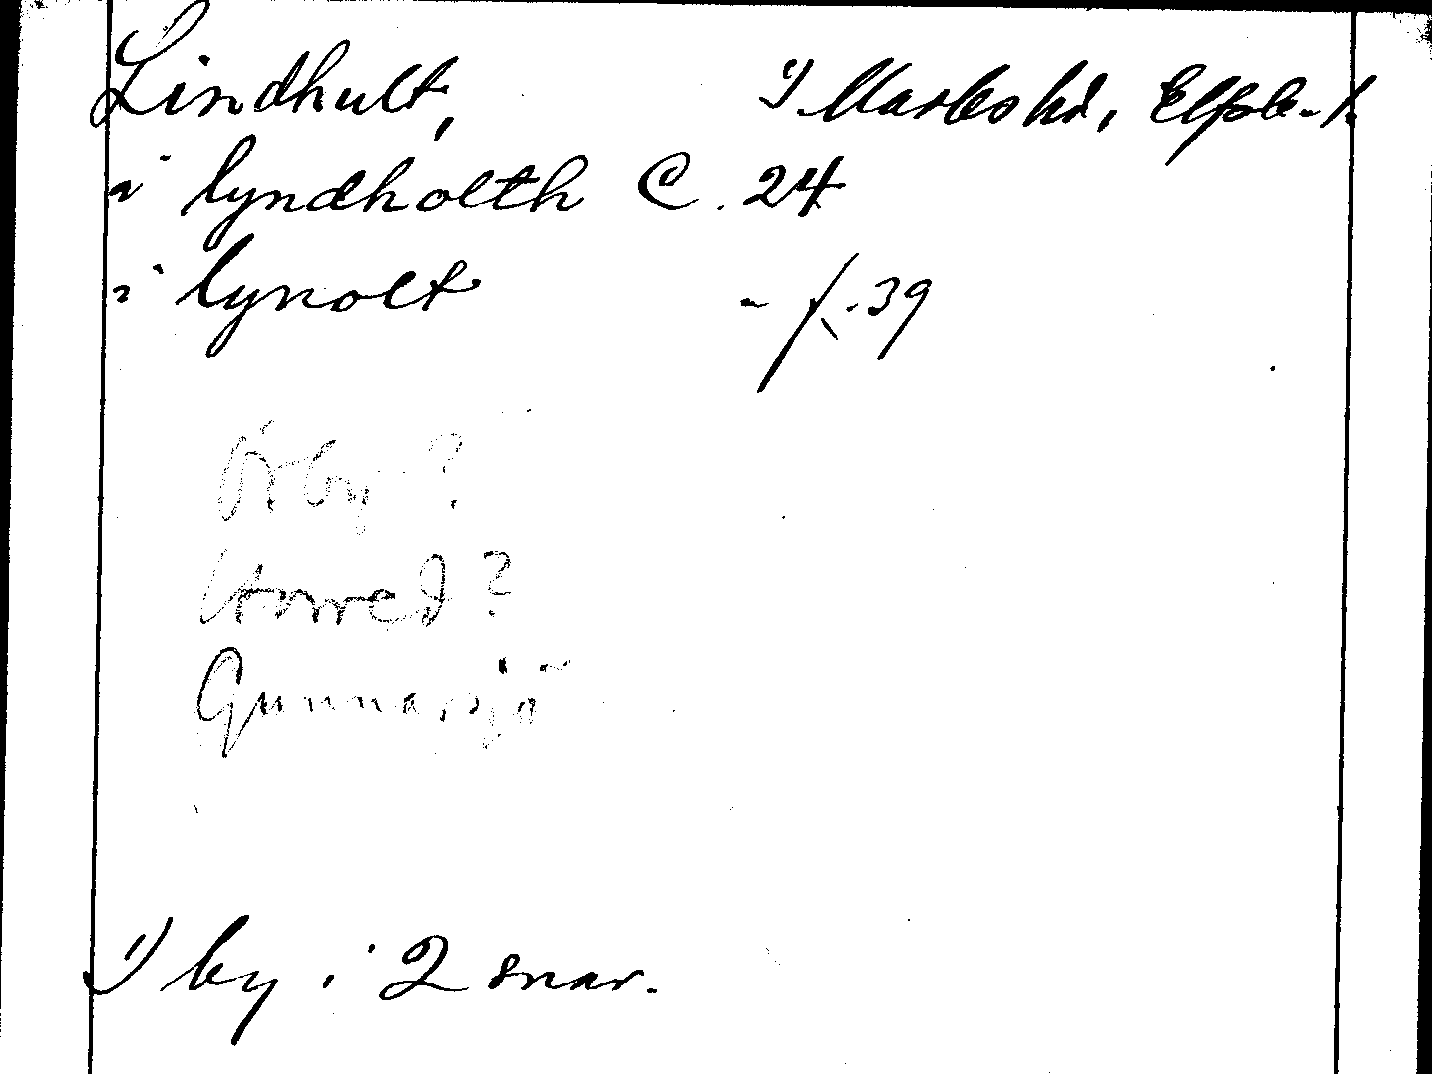 Lindhult, 1) Marks hd, Elfsb. l.
i lyndholth C. 24
i lynolt - f. 39
Örby?
Horred?
Gunnarsjö
1) by i 2 snar.